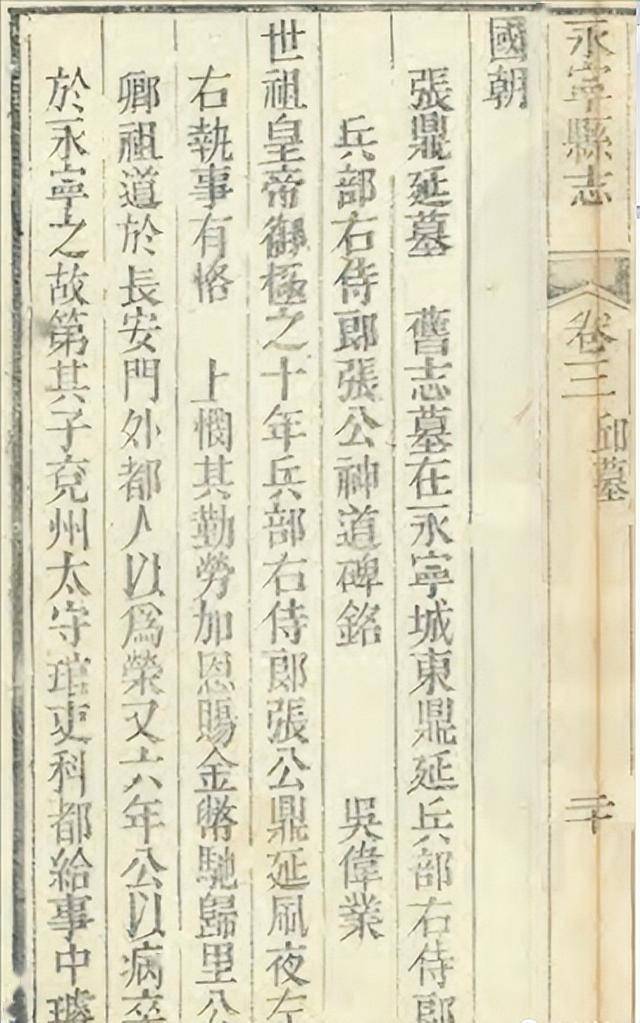 永寧縣志
卷三
邱墓
二十
國朝
張鼎延墓 舊志墓在永寧城東鼎延兵部右侍郎
兵部右侍郎張公神道碑銘 吳偉業
世祖皇帝御極之十年兵部右侍郎張公鼎延夙夜左
右執事有恪 上憫其勤勞加恩賜金幣馳歸里公
卿祖道於長安門外都人以爲榮又六年公以病卒
於永寧之故第其子兗州太守琯吏科都給事中璿